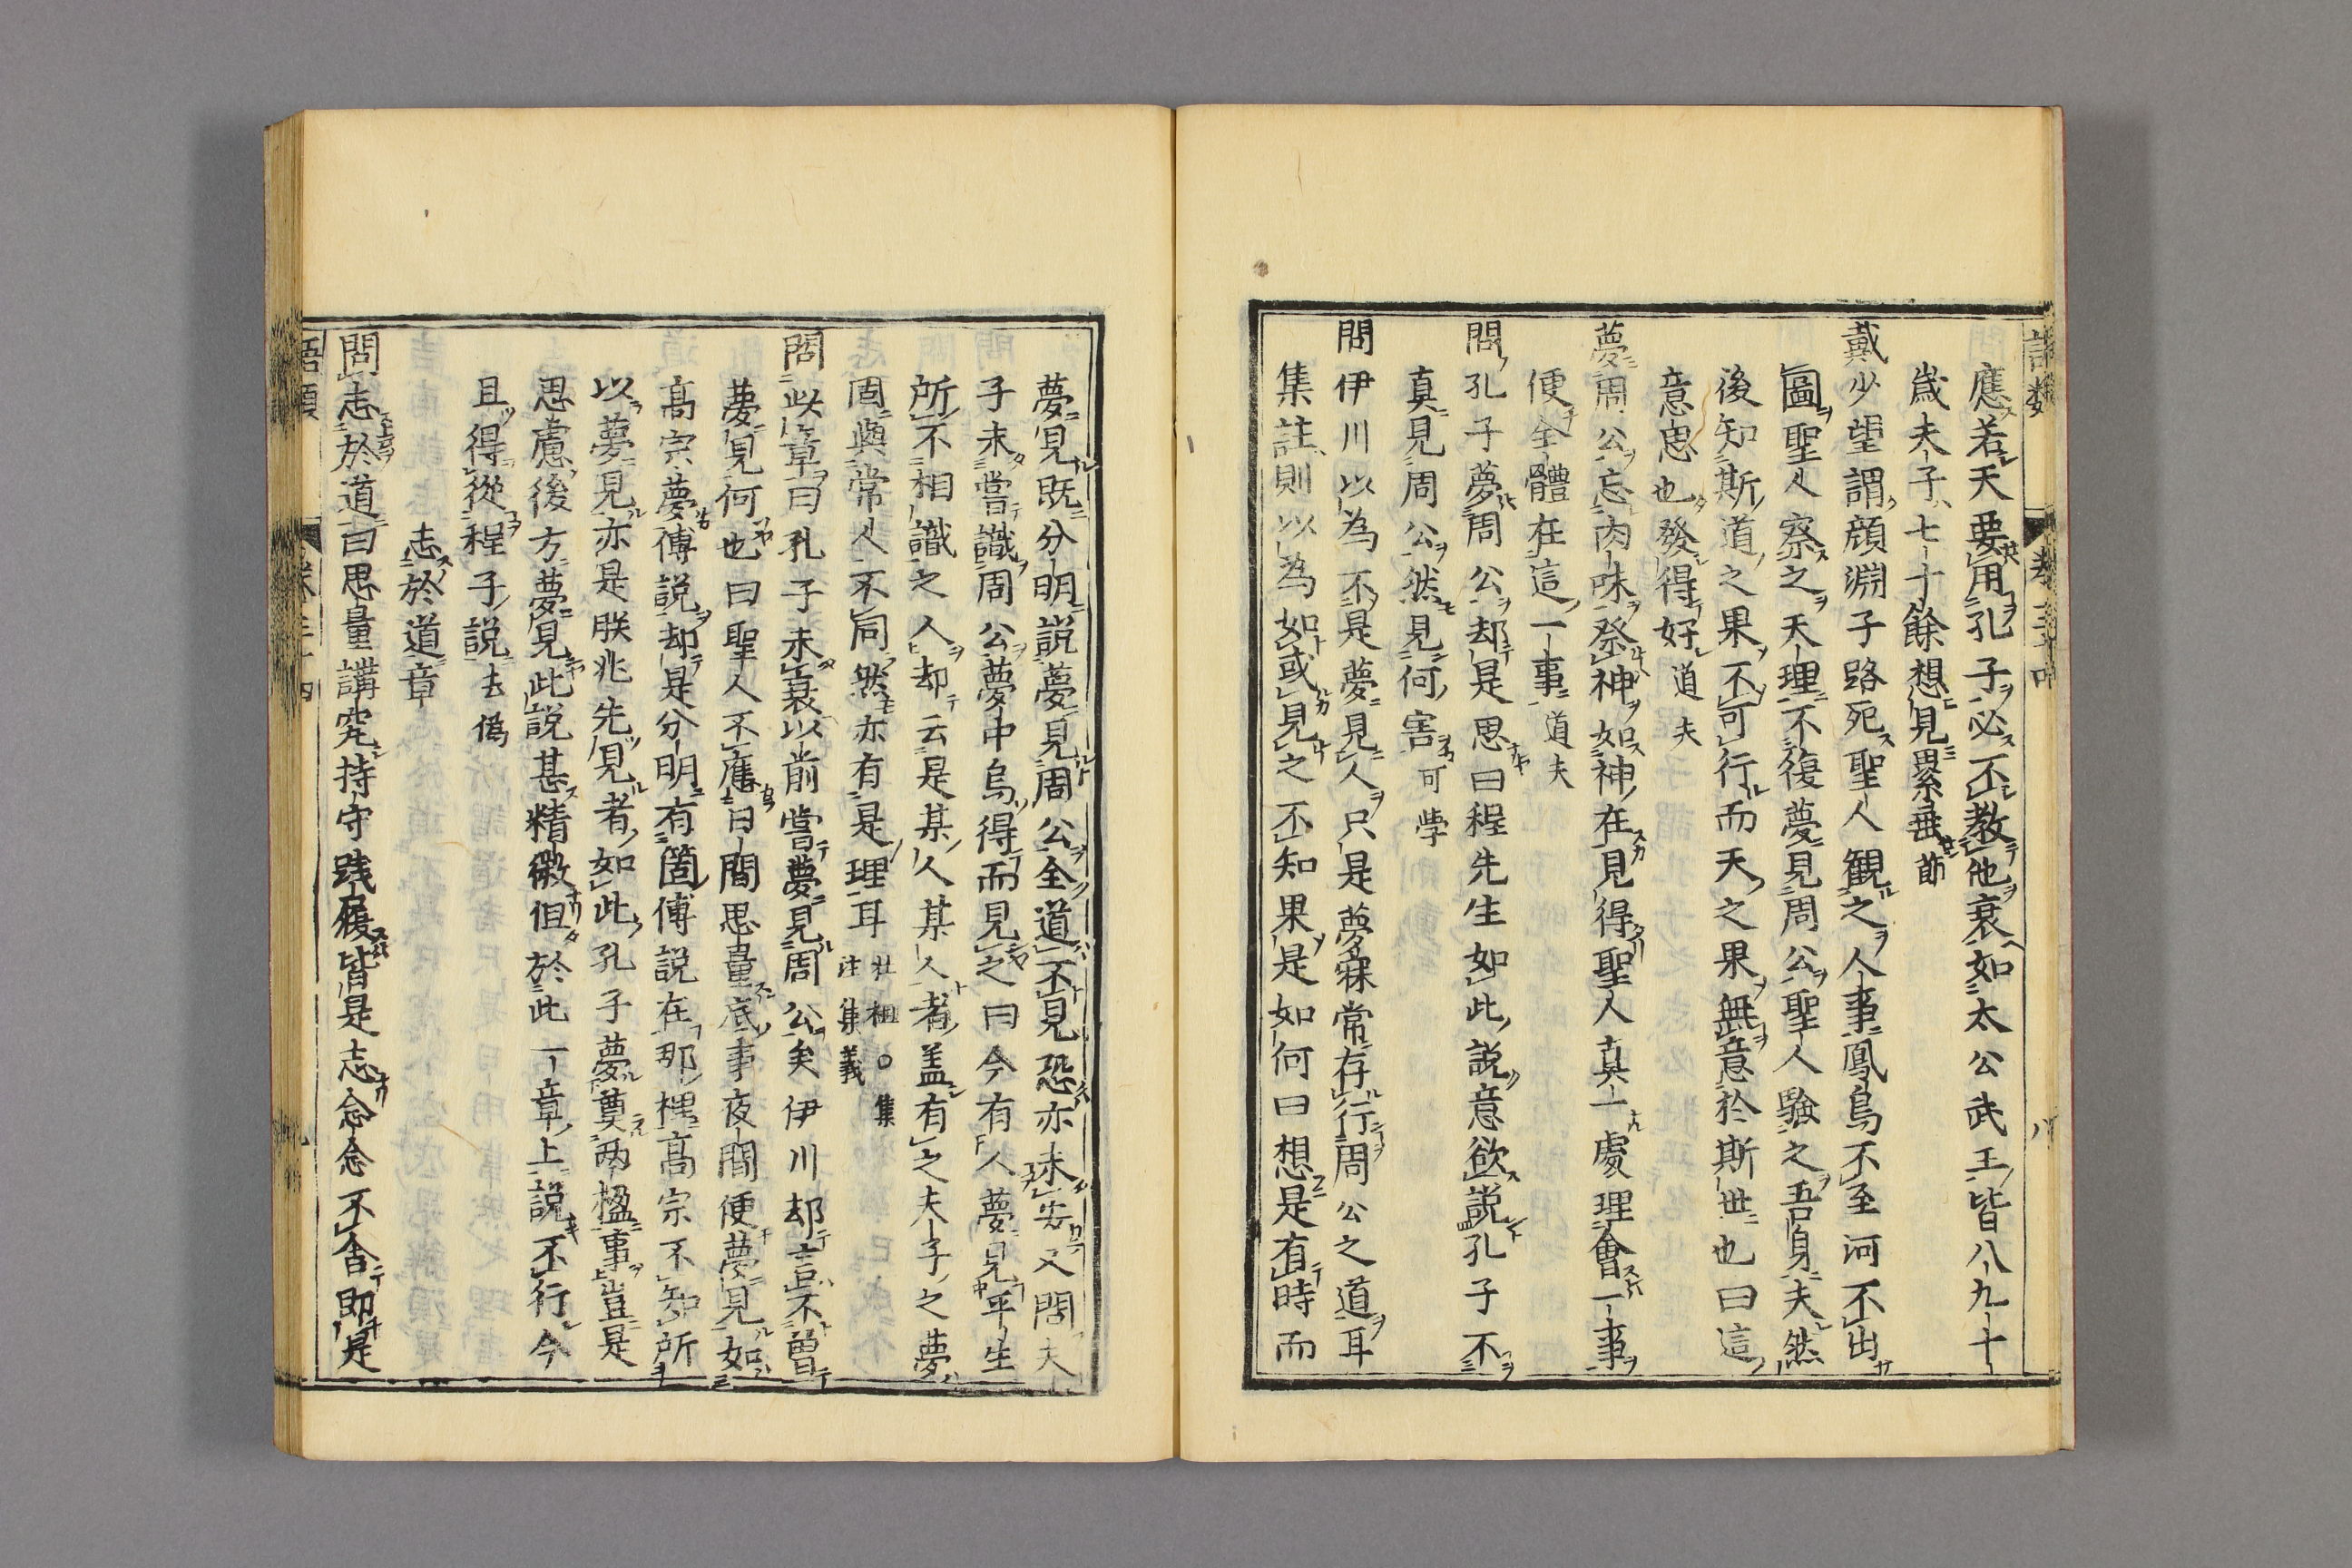 語類 卷三十四 八
應若天要用孔子必不教他衰如太公武王皆八九十
歳夫子七十餘想見累垂節
戴少望謂顔淵子路死聖人観之人事鳳鳥不至河不出
圖聖人察之天理不復夢見周公聖人驗之吾身夫然
後知斯道之果不可行而天之果無意於斯世也曰這
意思也發得好道夫
夢周公忘肉味祭神如神在見得聖人真一處理會一事
便全體在這一事道夫
問孔子夢周公却是思曰程先生如此説意欲説孔子不
真見周公然見何害可學
問伊川以為不是夢見人只是夢寐常存行周公之道耳
集註則以為如或見之不知果是如何曰想是有時而
夢見既分明説夢見周公全道不見恐亦未安又問夫
子未嘗識周公夢中烏得而見之曰今有人夢見平生
所不相識之人却云是某人某人者盖有之夫子之夢
固與常人不同然亦有是理耳壯祖○集
注集義
問此章曰孔子未衰以前嘗夢見周公矣伊川却言不曽
夢見何也曰聖人不應日間思量底事夜間便夢見如
高宗夢傅説却是分明有箇傅説在那裡高宗不知所
以夢見亦是朕兆先見者如此孔子夢奠両楹事豈是
思慮後方夢見此説甚精微但於此一章上説不行今
且得從程子説去僩
志於道章
問志於道曰思量講究持守践履皆是志念念不舎即是
語類 卷三十四 九